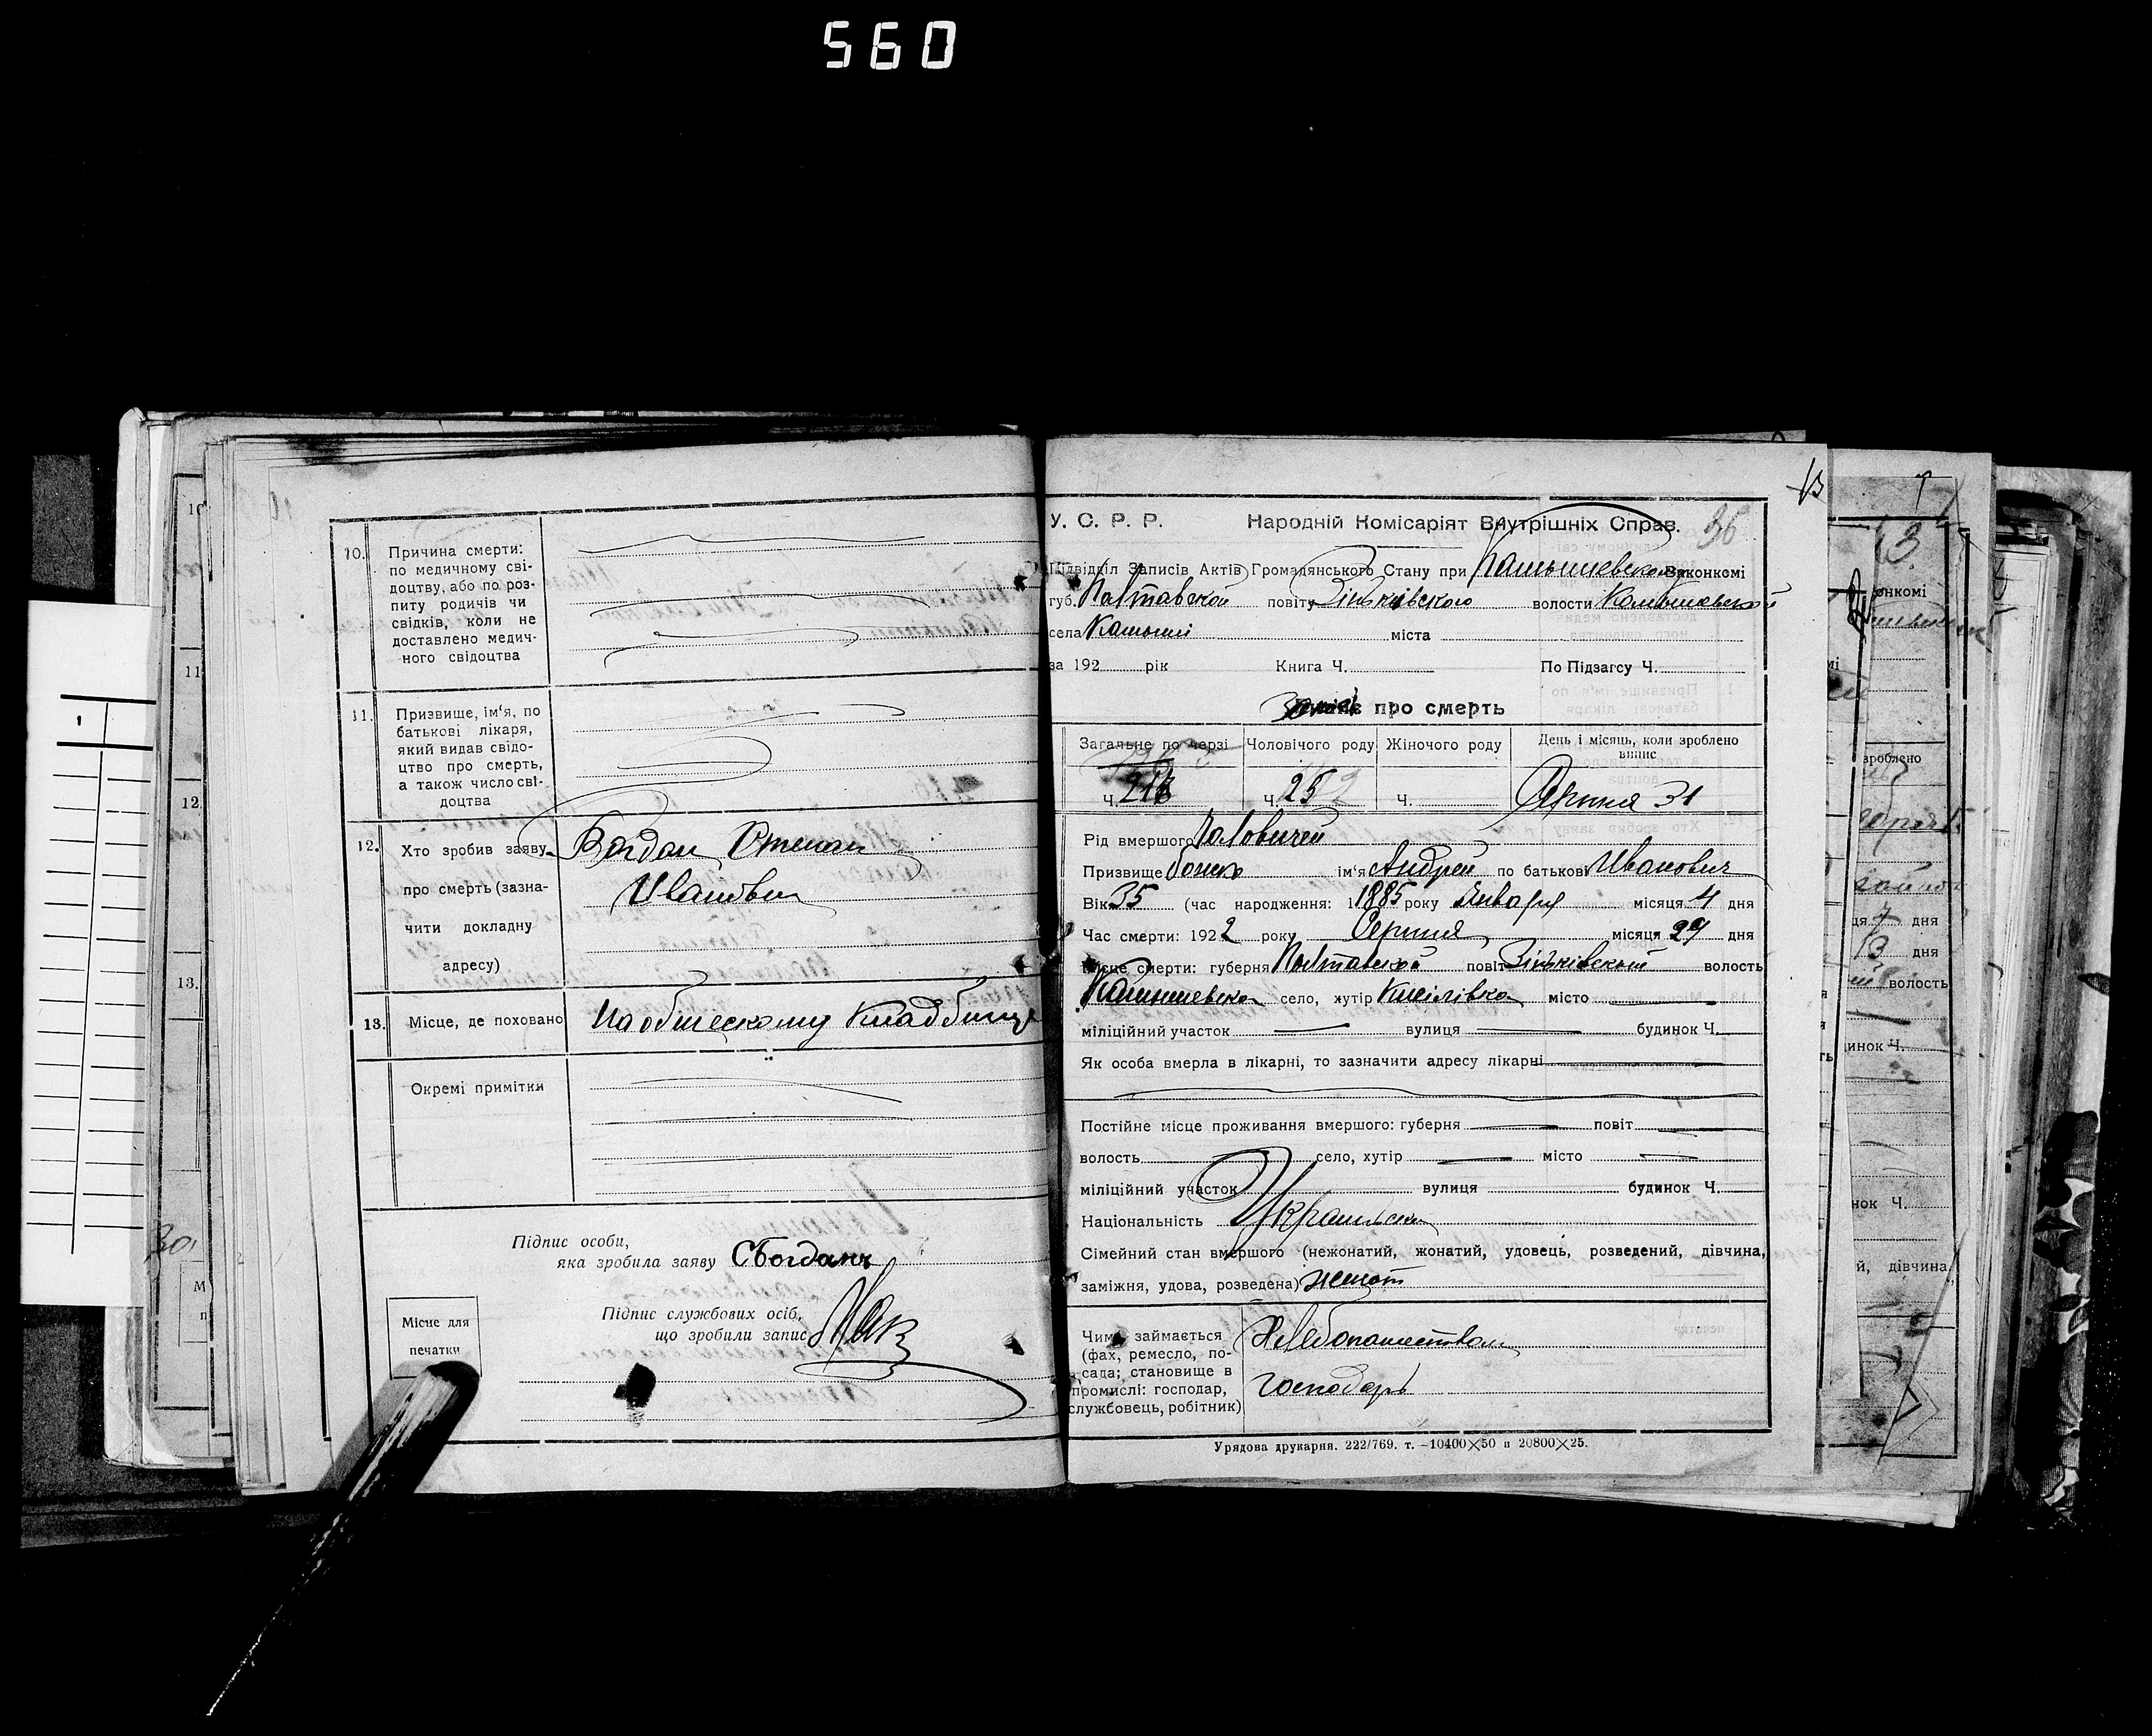 560
10. Причина смерти:
по медичному сві-
доцтву, або по роз-
питу родичів чи
свідків, коли не
доставлено медич-
ного свідоцтва
11. Призвище, ім'я, по
батькові лікаря,
який видав свідо-
цтво про смерть,
а також число сві-
доцтва
12. Хто зробив заяву Богдан Степан
про смерть (зазна- Иванович
чити докладну
адресу)
13. Місце, де поховано На обческому Кладбище
Окремі примітки
Підпис особи,
яка зробила заяву СБогданъ
Підпис службових осіб,
що зробили запис
Місце для
печатки
13
У. С. Р. Р. Народній Комісаріят Внутрішніх Справ. 36
Підвідділ Записів Актів Громадянського Стану при Камышевском Виконкомі
губ. Полтавской повіту Зіньківского волости Камышевской
села Камыши міста
за 192 рік Книга Ч. По Підзагсу Ч.
Запись про смерть
Загальне по черзі Чоловічого роду Жіночого роду День і місяць, коли зроблено
випис
Ч. Ч. 25 Ч. Серпня 31
Рід вмершого Чоловичей
Призвище ім'я Андрей по батькові Иванович
Вік 35 (час народження: 1885 року Января місяця 4 дня
Час смерти: 1922 року Серпня місяця 29 дня
Місце смерти: губерня Полтавской повіт Зіньківский волость
Камышевска село, хутір місто
міліційний участок вулиця будинок Ч.
Як особа вмерла в лікарні, то зазначити адресу лікарні
Постійне місце проживання вмершого: губерня повіт
волость село, хутір місто
міліційний участок вулиця будинок Ч.
Національність
Сімейний стан вмершого (нежонатий, жонатий, удовець, розведений, дівчина,
заміжня, удова, розведена) женат
Чим займається Хлебопашеством
(фах, ремесло, по-
сада; становище в
промислі: господар, господарь
службовець, робітник)
Урядова друкарня. 222/769. т. –10400×50 и 20800×25.